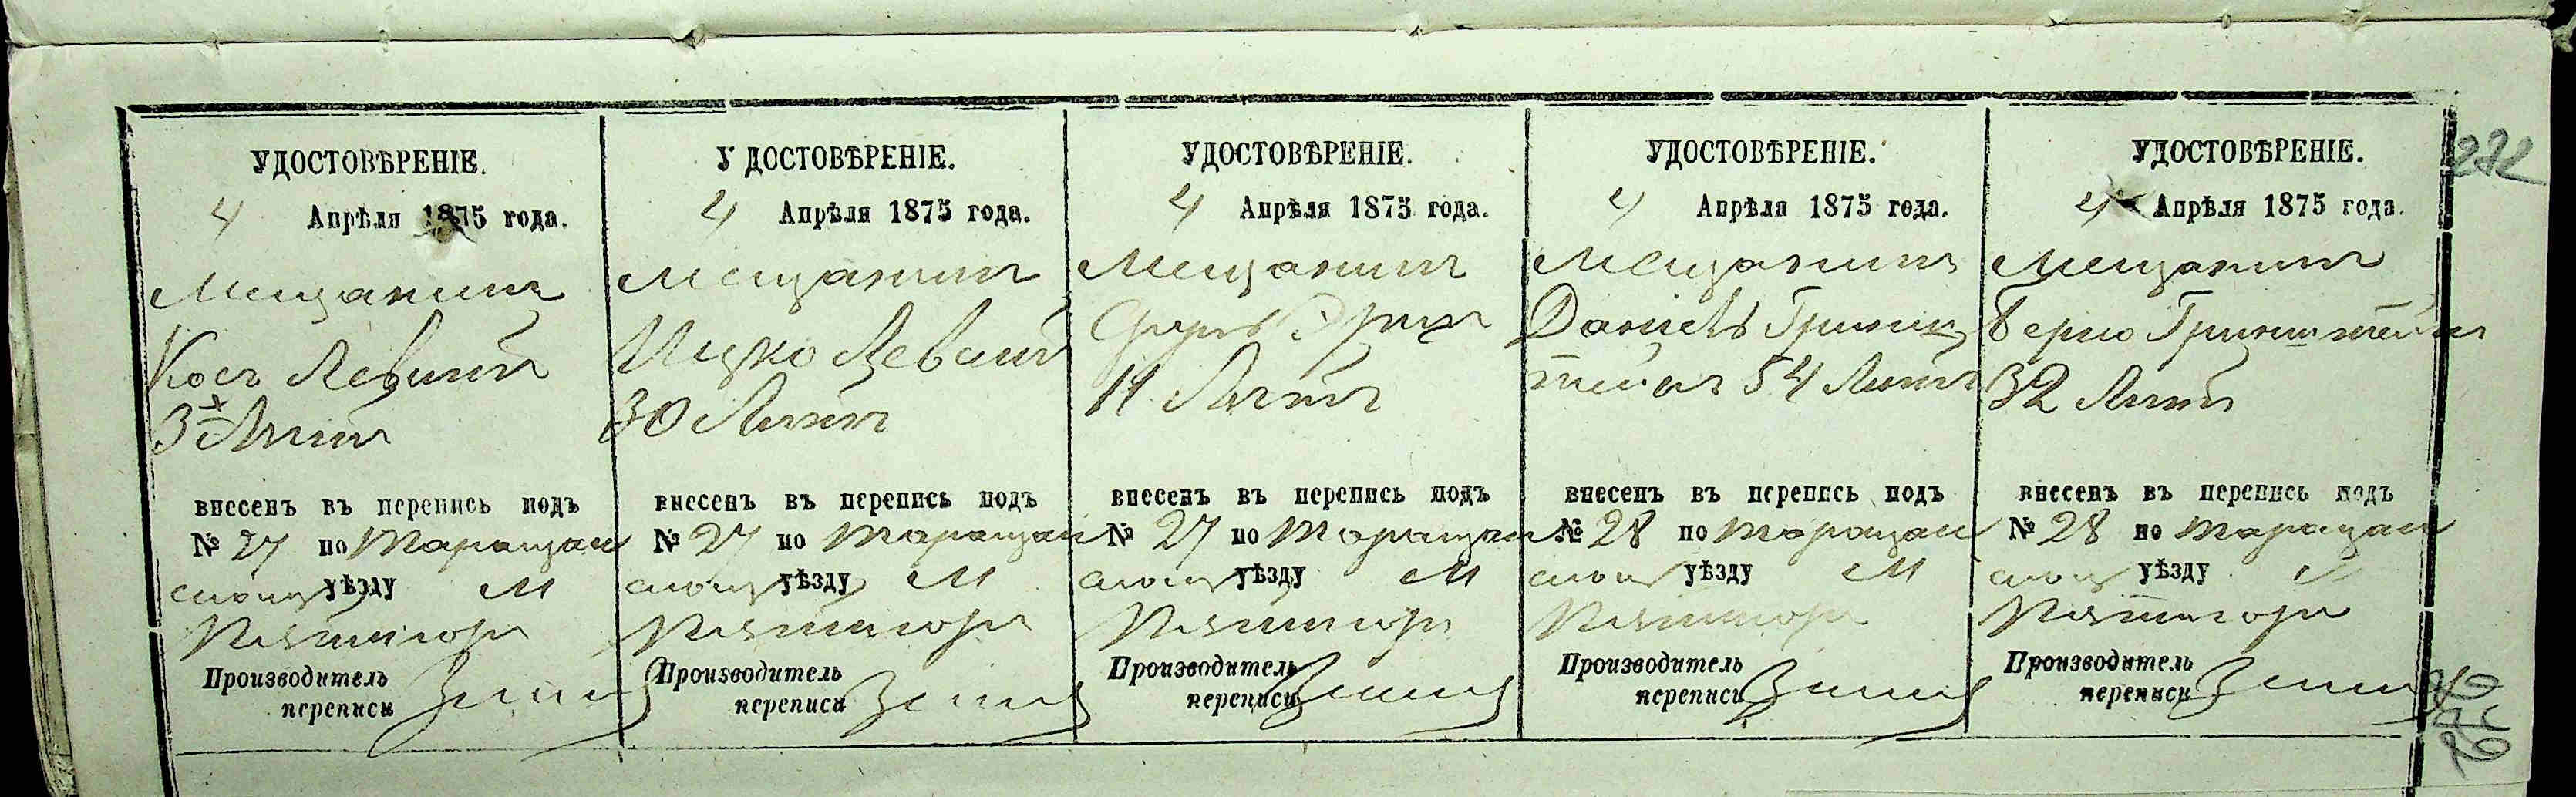 УДОСТОВѢРЕНІЕ.
4 Апрѣля 1875 года.
Мещанинъ
Лѣтъ
внесенъ въ перепись подъ
№ 27 по Таращан
скому уѣзду М
Пятигоры
Производитель
переписи
УДОСТОВѢРЕНІЕ.
4 Апрѣля 1875 года.
Мещанинъ
Ицко
30 Лѣтъ
внесенъ въ перепись подъ
№ 27 по Таращан
скому уѣзду М
Пятигоры
Производитель
переписи
УДОСТОВѢРЕНІЕ.
4 Апрѣля 1875 года.
Мещанинъ
11 Лѣтъ
внесенъ въ перепись подъ
№ 27 по Таращан
скому уѣзду М
Пятигоры
Производитель
переписи
УДОСТОВѢРЕНІЕ.
4 Апрѣля 1875 года.
Мещанинъ
Даніелъ Гринш
тейнъ 54 Лѣтъ
внесенъ въ перепись подъ
№ 28 по Таращан
скому уѣзду М
Пятигоры
Производитель
переписи
УДОСТОВѢРЕНІЕ.
4 Апрѣля 1875 года.
Мещанинъ
Берко Гринштейнъ
32 Лѣтъ
внесенъ въ перепись подъ
№ 28 по Таращан
скому уѣзду
Пятигоры
Производитель
переписи
272